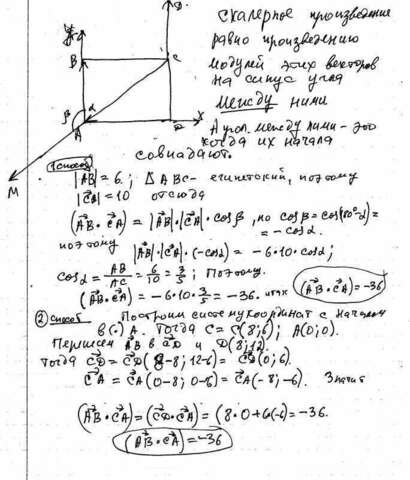 скалерное произведение
равно произведению
модулей этих векторов
на синус угла
между ними
А угол между ними - это
когда их начала
совпадают.
B
C
D
β
α
A
X
M
1 способ
|AB| = 6; Δ ABC - египетский, поэтому
|CA| = 10 отсюда
(AB · CA) = |AB| · |CA| · cosβ, но cosβ = cos(180° - α) =
= -cosα.
поэтому
|AB| · |CA| · (-cosα) = -6·10·cosα;
cosα = AB/AC = 6/10 = 3/5; Поэтому.
(AB · CA) = -6·10·3/5 = -36. итак (AB · CA) = -36
2 способ Построим систему координат с началом
в (·) A. Тогда C = C(8; 6); A(0; 0).
Перенесем AB в CD и D(8; 12).
Тогда CD = CD(8-8; 12-6) = CD(0; 6).
CA = CA(0-8; 0-6) = CA(-8; -6). Значит
(AB · CA) = (CD · CA) = (8·0 + 6(-6) = -36.
(AB · CA) = -36